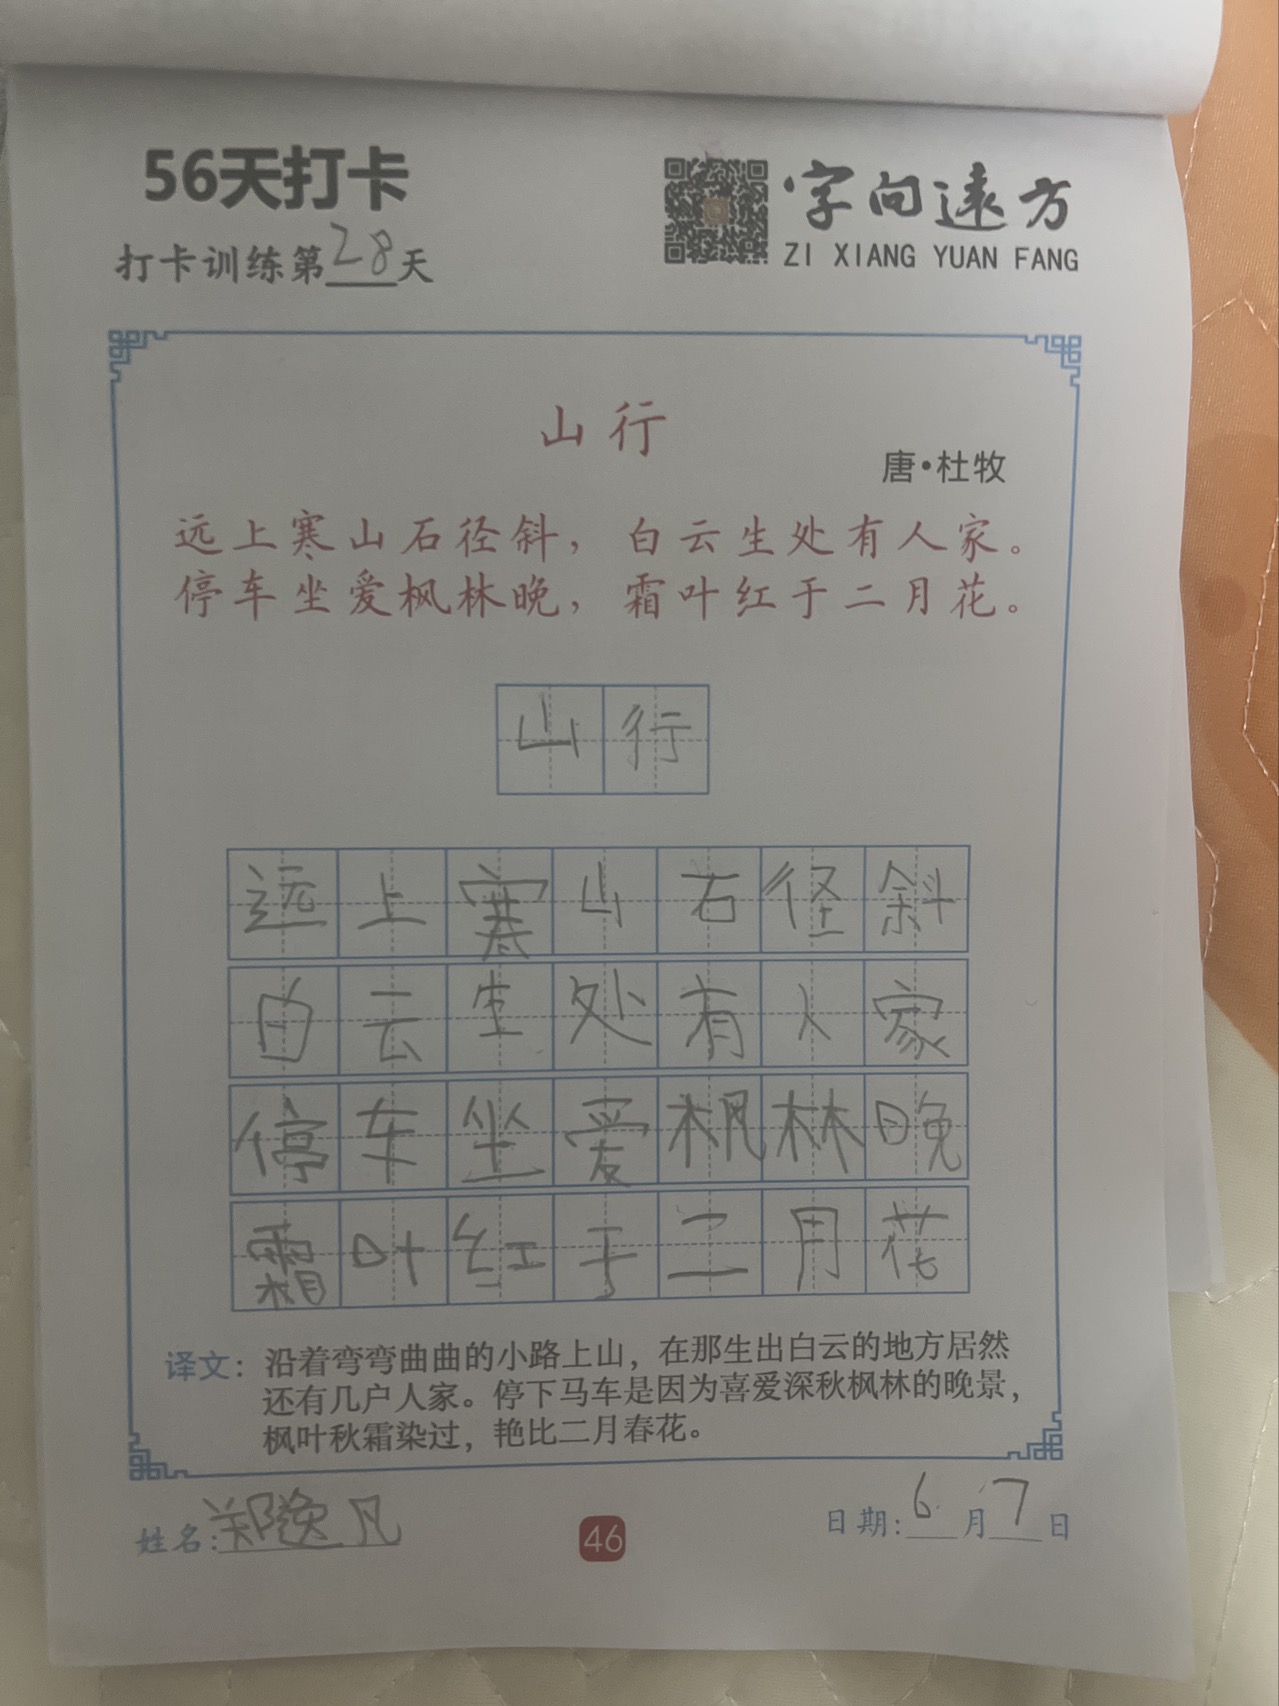 56天打卡
打卡训练第28天
字向远方
ZI XIANG YUAN FANG
山行
唐·杜牧
远上寒山石径斜，白云生处有人家。
停车坐爱枫林晚，霜叶红于二月花。
山行
远上寒山石径斜
白云生处有人家
停车坐爱枫林晚
霜叶红于二月花
译文：沿着弯弯曲曲的小路上山，在那生出白云的地方居然
还有几户人家。停下马车是因为喜爱深秋枫林的晚景，
枫叶秋霜染过，艳比二月春花。
姓名:郑逸凡
46
日期:6月7日